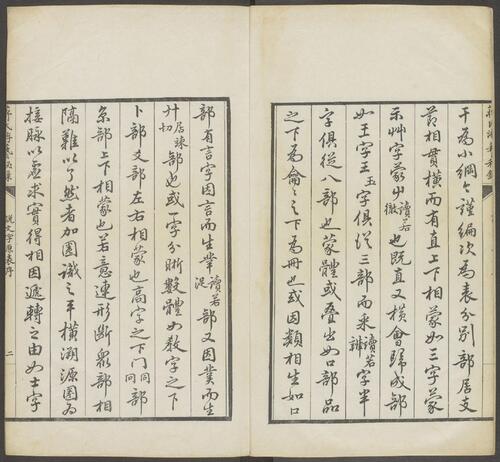 干為小綱〻謹編次為表分別部居支
節相貫橫而有直上下相蒙如三字蒙
示艸字蒙屮讀若徹也既直又橫會歸成部
如王字王玉字俱從三部而釆讀若辨字半
字俱從八部也蒙體或疊出如口部品
之下為龠〻之下為冊也或因類相生如口
部有言字因言而生丵讀若浞部又因菐而生
廾居竦切部也或一字分晰數體如教字之下
卜部爻部左右相蒙也高字之下冂冋部
糸部上下相蒙也若意連形斷眾部相
隔難以了然者加圈識之平橫溯源圈為
接脈以虛求實得相因遞轉之由如士字
說文字原表序
二